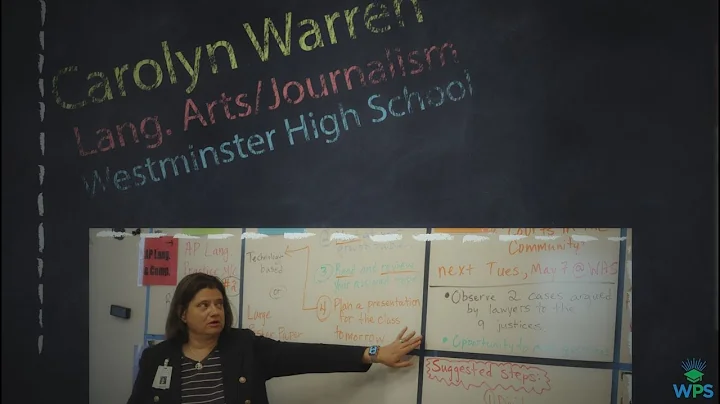 Carolyn Warren
Lang. Arts/Journalism
Westminster High School
AP Lang.
& Comp.
AP Lang
#2
Technology
based
or
Large
Paper
Read and review
④ Plan a presentation
for the class
tomorrow.
Courts in the
Community:
next Tues, May 7 @ WHS
• Observe 2 cases argued
by lawyers to the
9 justices.
• Opportunity
Suggested Steps:
WPS